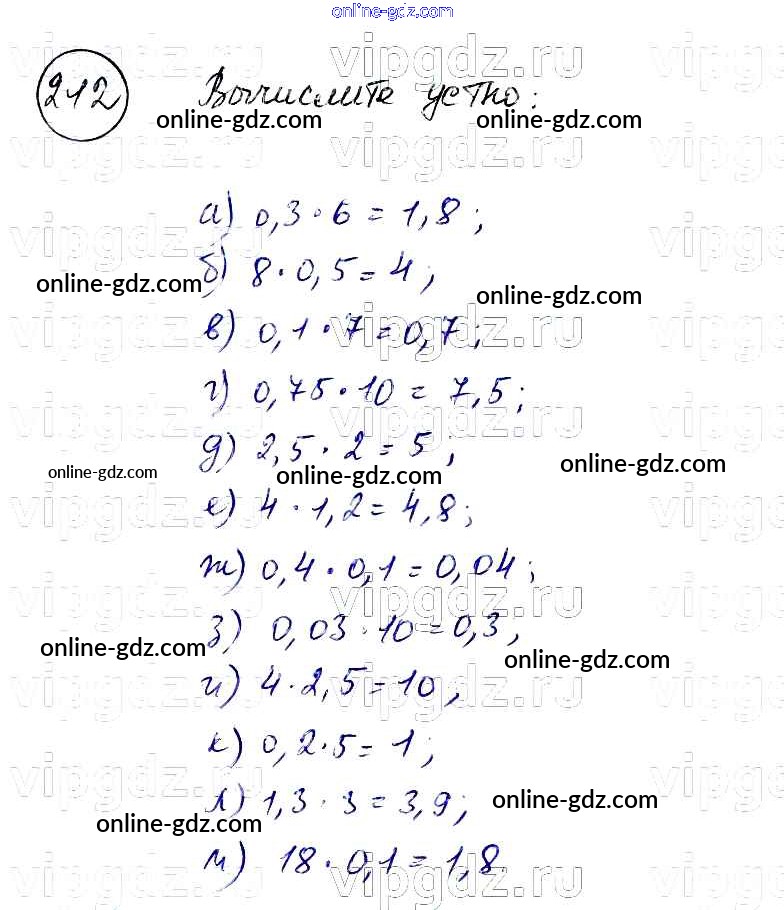 online-gdz.com
212 Вычислите устно:
online-gdz.com online-gdz.com
vipgdz.ru vipgdz.ru
а) 0,3 · 6 = 1,8;
б) 8 · 0,5 = 4;
online-gdz.com
online-gdz.com
в) 0,1 · 7 = 0,7;
г) 0,75 · 10 = 7,5;
д) 2,5 · 2 = 5;
online-gdz.com online-gdz.com online-gdz.com
е) 4 · 1,2 = 4,8;
ж) 0,4 · 0,1 = 0,04;
з) 0,03 · 10 = 0,3,
online-gdz.com online-gdz.com
и) 4 · 2,5 = 10,
к) 0,2 · 5 = 1;
л) 1,3 · 3 = 3,9;
online-gdz.com
online-gdz.com
м) 18 · 0,1 = 1,8.